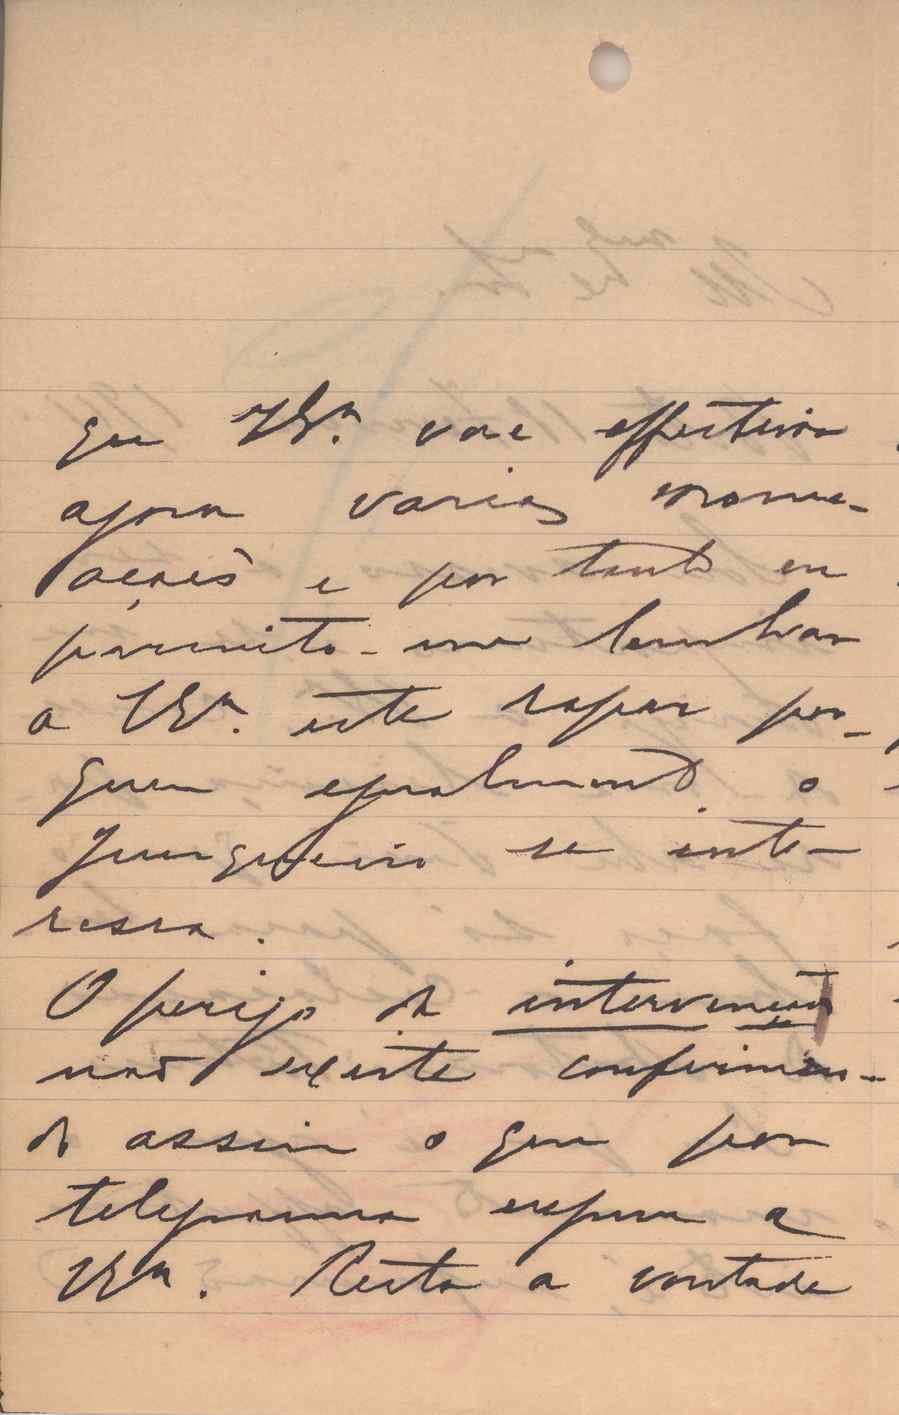 que VEx. vae effectivar
agora varias nome-
ações e por tanto eu
permito-me lembrar
a VEx. este rapaz por
quem egualmente o
Junqueiro se inte-
ressa.
O perigo da intervenção
não existe confirman-
do assim o que por
telegramma expuz a
VEx. Resta a vontade